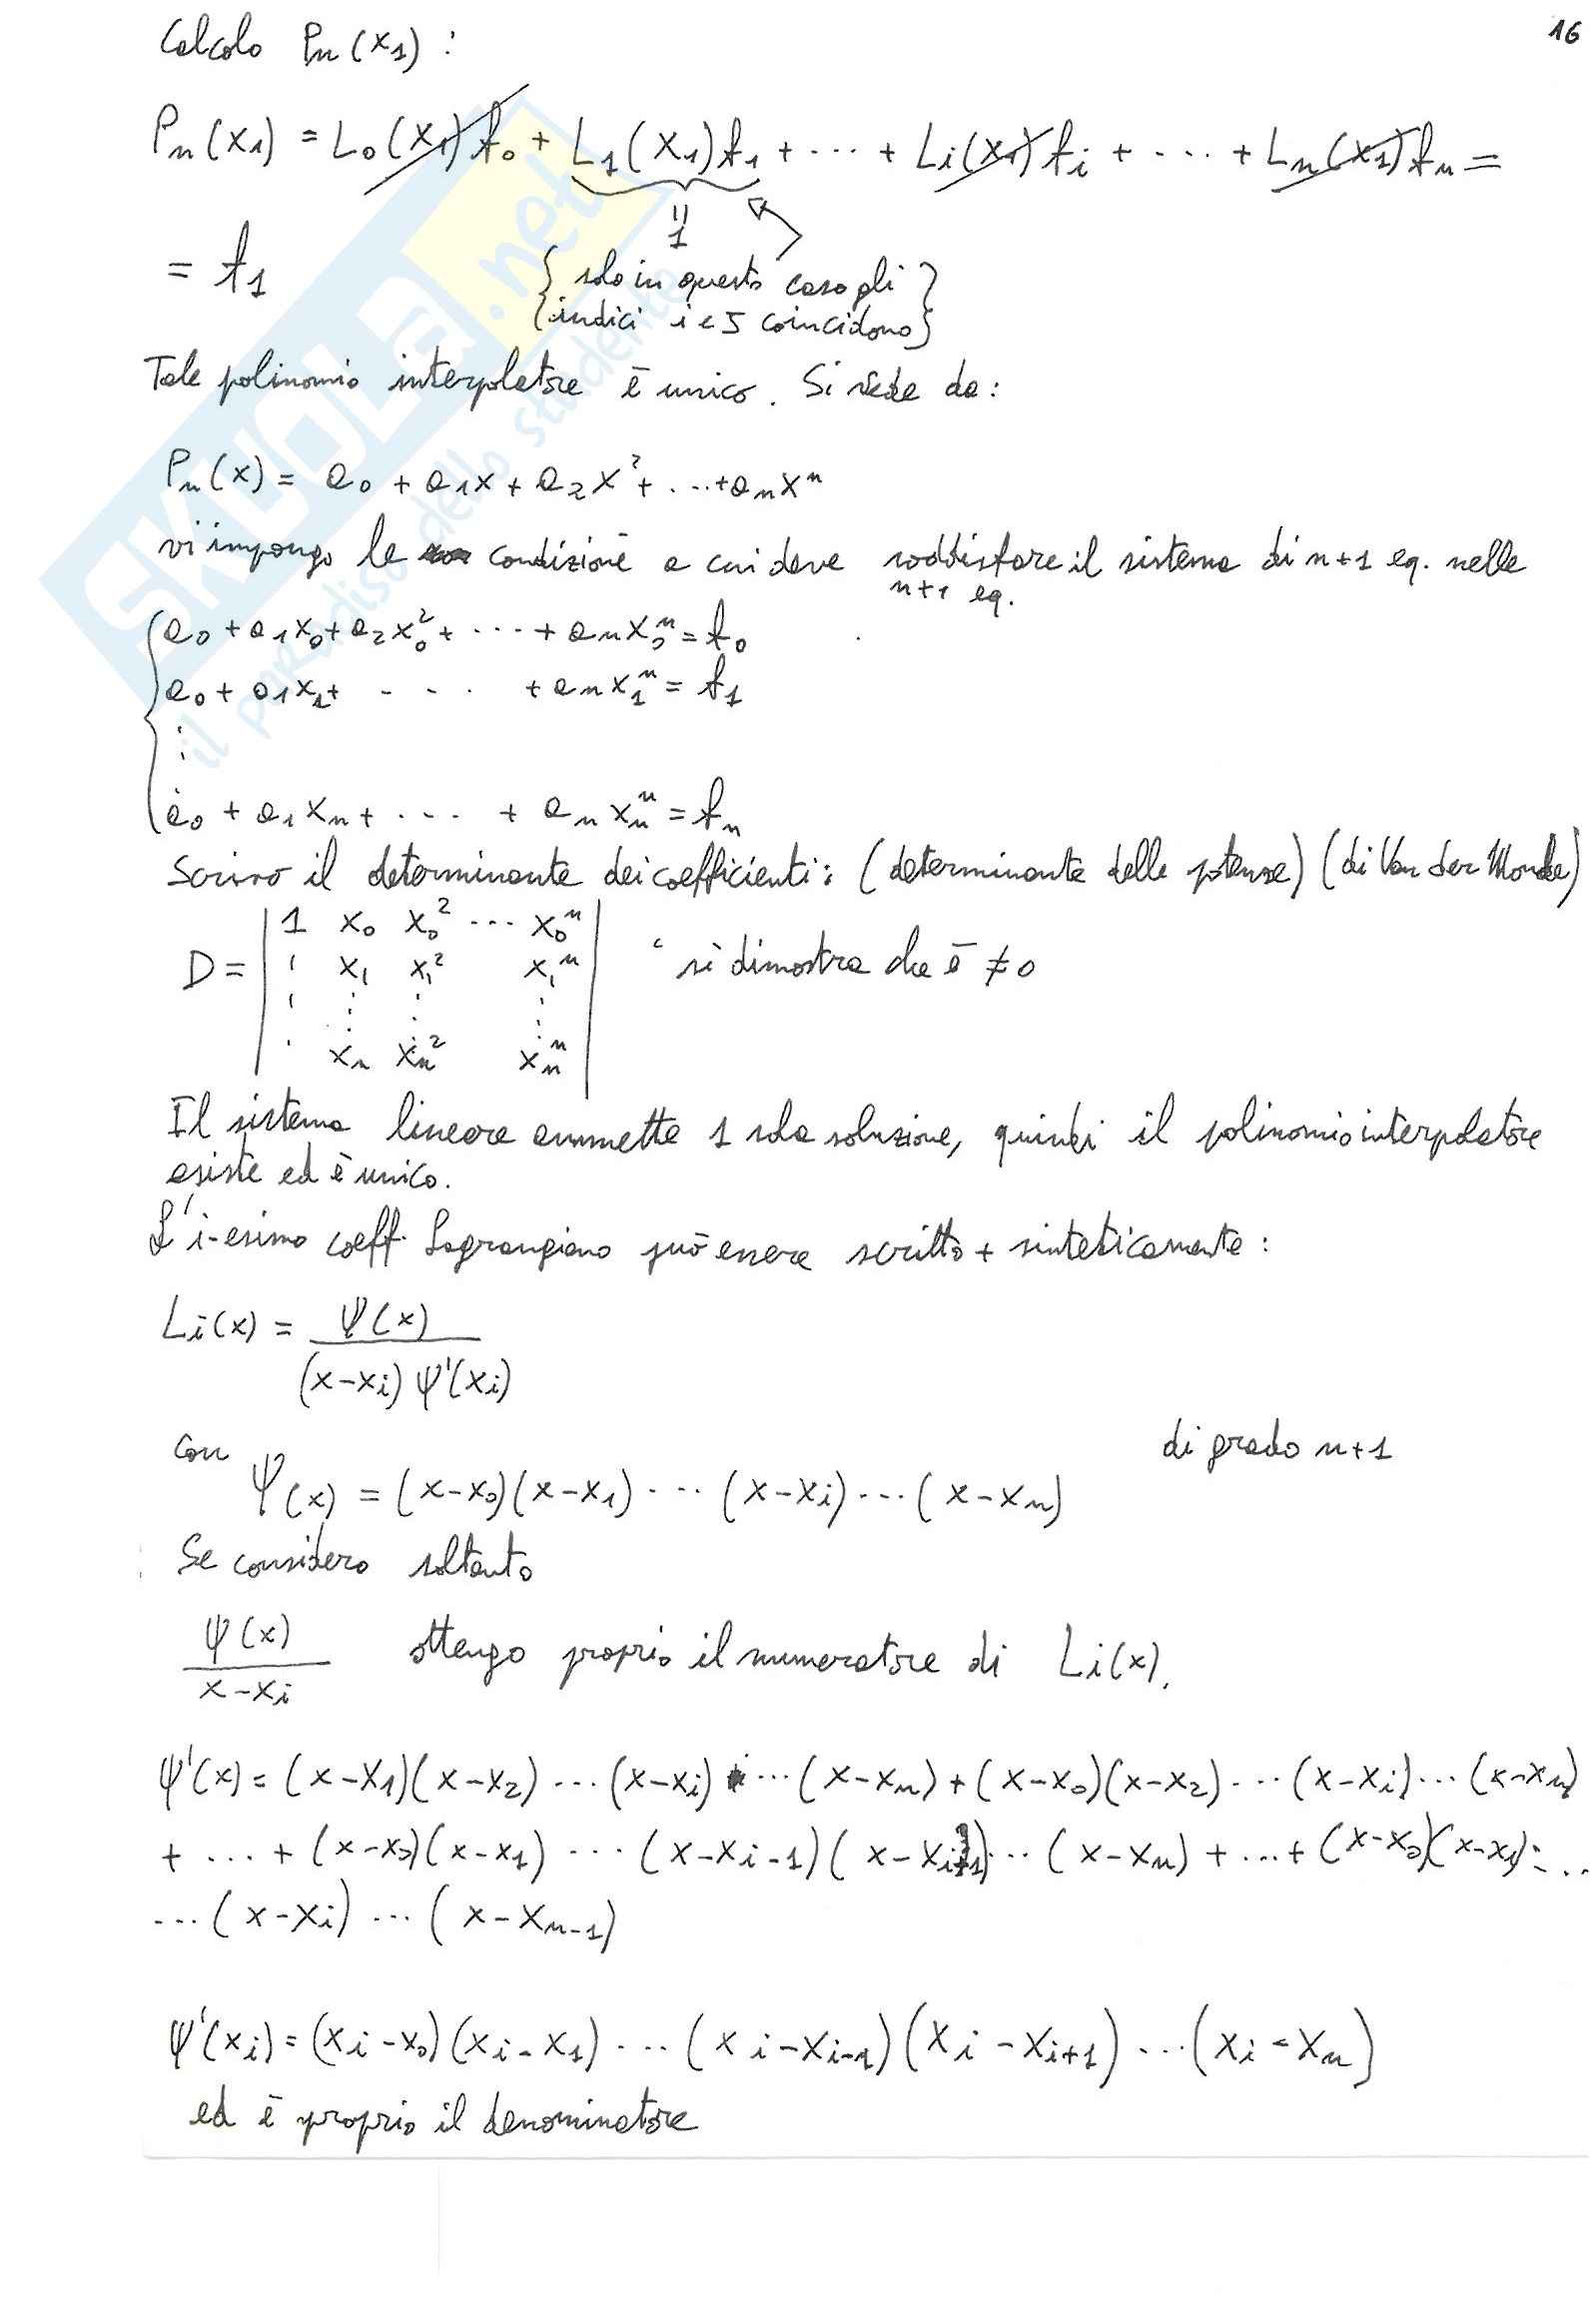 16
Calcolo Pn(x1) :
Pn(x1) = L0(x1)f0 + L1(x1)f1 + ... + Li(x1)fi + ... + Ln(x1)fn =
= f1
1
{ solo in questo caso gli }
{ indici i e J coincidono }
Tale polinomio interpolatore è unico. Si vede da:
Pn(x) = a0 + a1x + a2x² + ... + anxⁿ
vi impongo le condizione a cui deve soddisfare il sistema di n+1 eq. nelle
n+1 eq.
a0 + a1x0 + a2x0² + ... + anx0ⁿ = f0
a0 + a1x1 + ... + anx1ⁿ = f1
⋮
a0 + a1xn + ... + anxnⁿ = fn
Scrivo il determinante dei coefficienti: (determinante delle potenze) (di Van der Monde)
D = | 1 x0 x0² ... x0ⁿ |
| 1 x1 x1² x1ⁿ | si dimostra che è ≠ 0
| ⋮ ⋮ ⋮ ⋮ |
| xn xn² xnⁿ |
Il sistema lineare ammette 1 sola soluzione, quindi il polinomio interpolatore
esiste ed è unico.
L'i-esimo coeff. Lagrangiano può essere scritto + sinteticamente :
Li(x) = ψ(x)
(x-xi) ψ'(xi)
con di grado n+1
ψ(x) = (x-x0)(x-x1) ... (x-xi) ... (x-xn)
Se considero soltanto
ψ(x)
x-xi
ottengo proprio il numeratore di Li(x).
ψ'(x) = (x-x1)(x-x2) ... (x-xi) ... (x-xn) + (x-x0)(x-x2) ... (x-xi) ... (x-xn)
+ ... + (x-x0)(x-x1) ... (x-xi-1)(x-xi+1) ... (x-xn) + ... + (x-x0)(x-x1) ...
... (x-xi) ... (x-xn-1)
ψ'(xi) = (xi-x0)(xi-x1) ... (xi-xi-1)(xi-xi+1) ... (xi-xn)
ed è proprio il denominatore
SKUOLA.net
il paradiso dello studente